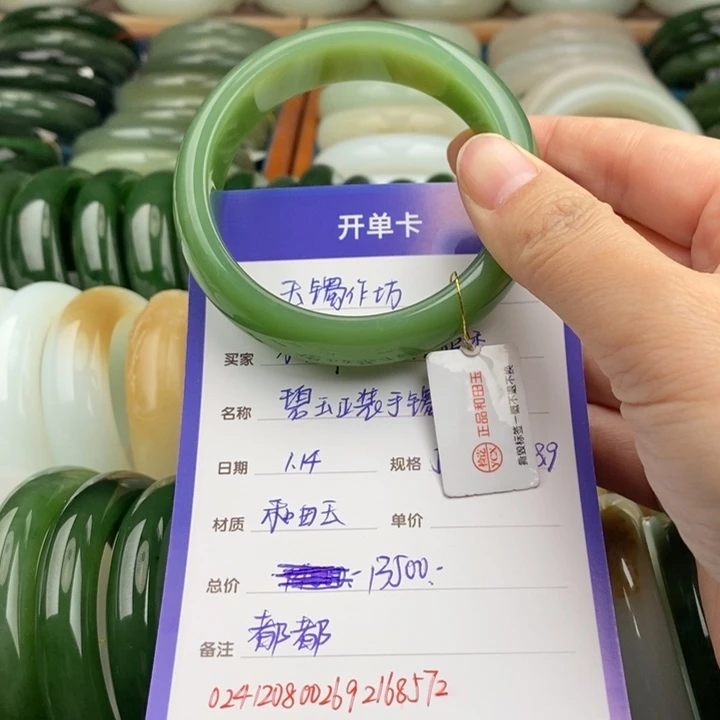 开单卡
天镯作坊
买家
名称 碧玉正装手镯
日期 1.14 规格 89
材质 和田玉 单价
总价 13500.-
备注 都都
0241208002692168572
正品和田玉
撕毁标签一概不退不换